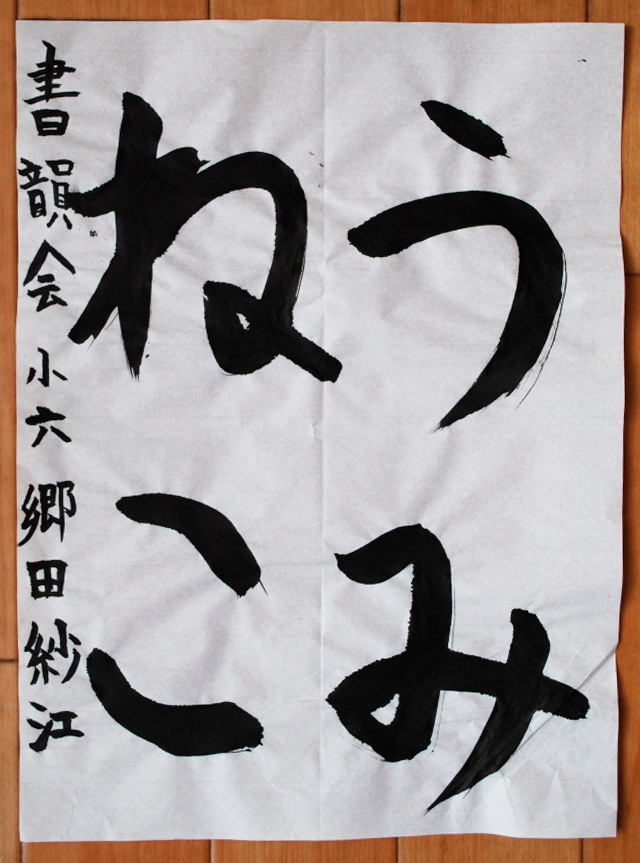 うみ
ねこ
書韻会 小六 郷田紗江